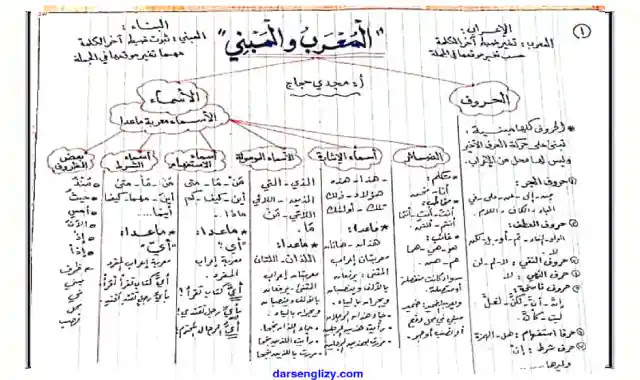 ①
"المُعرَبُ والمَبني"
الإعراب:
المعرب: تغير ضبط آخر الكلمة
حسب تغير موقعها في الجملة
البناء:
المبني: ثبوت ضبط آخر الكلمة
مهما تغير موقعها في الجملة
أ/ مجدي حجاج
الحروف
* الحروف كلها مبنية
تبنى على حركة الحرف الأخير
وليس لها محل من الإعراب.
① حروف الجر:
من - إلى - عن - على - في
الباء - الكاف - اللام.
② حروف العطف:
الواو - الفاء - ثم - أو - بل - لكن
③ حروف النفي: لا - لم - لن
④ حرف النهي: لا
⑤ حروف ناسخة:
إنَّ - أنَّ - لكنَّ - لعلَّ
ليت - كأنَّ.
⑥ حرفا استفهام: هل - الهمزة
⑦ حرف شرط: إنْ
وغيرها...
الأسماء
الأسماء معربة ماعدا
الضمائر
- متكلم:
أنا - نحن
- مخاطب:
أنت - أنتِ - أنتما
أنتم - أنتن.
- غائب:
هو - هي - هما
هم - هن.
سواء كانت منفصلة
أو متصلة.
مبني في محل رفع
أو نصب أو جر.
أسماء الإشارة
هذا - هذه
هؤلاء - ذلك
تلك - أولئك
* ماعدا:
هذان - هاتان
معربتان إعراب
المثنى: يرفعان
بالألف وينصبان
ويجران بالياء.
الأسماء الموصولة
الذي - التي
الذين - اللاتي
اللائي - مَنْ
مَا.
* ماعدا:
اللذان - اللتان
معربتان إعراب
المثنى: يرفعان
بالألف وينصبان
ويجران بالياء.
أسماء الاستفهام
مَنْ - مَا - متى
أين - كيف - كم
ماذا.
* ماعدا:
"أي"
معربة إعراب
المفرد.
أيُّ كتاب تقرأ؟
أسماء الشرط
مَنْ - مَا - متى
أين - مهما - كيفما
أينما...
* ماعدا:
"أيّ"
معربة إعراب المفرد
أيَّ كتاب تقرأ أقرأ
بعض الظروف
* منذُ
* حيثُ
* أمسِ
* الآنَ
* إذْ
* إذا
* ظرف
مبني
في
محل
نصب
darsenglizy.com